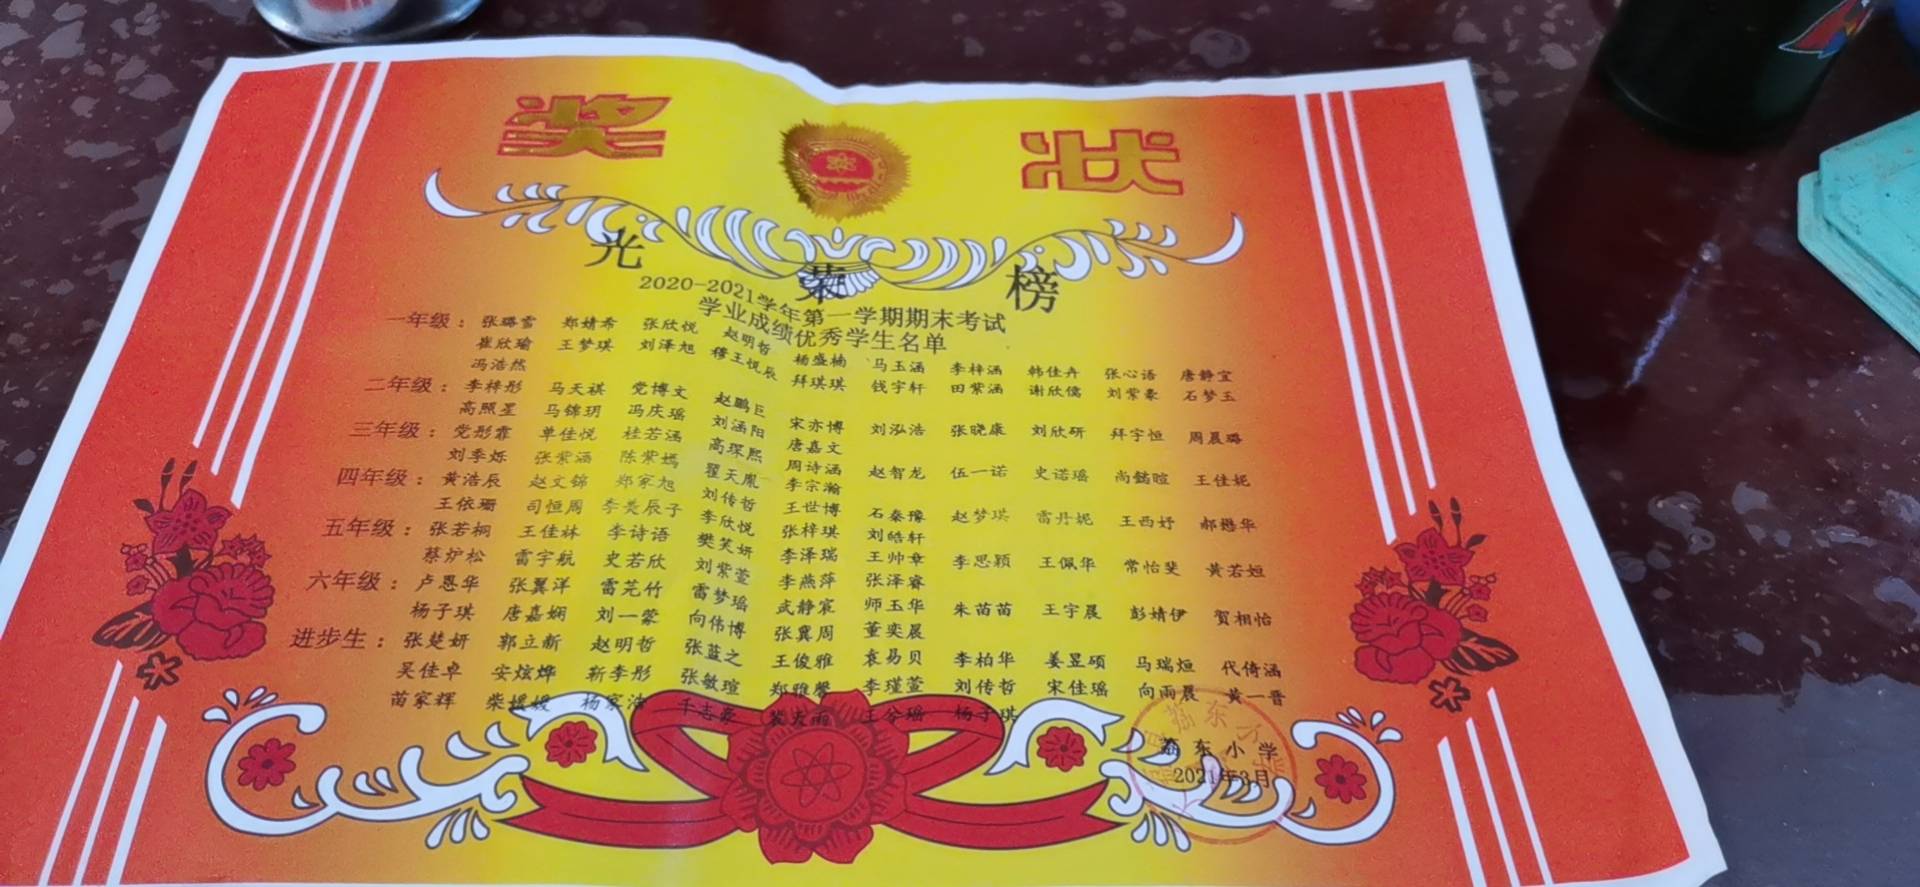 奖 状
光 荣 榜
2020-2021学年第一学期期末考试
学业成绩优秀学生名单
一年级：张璐雪 郑婧希 张欣悦 赵明哲 杨盛楠 马玉涵 李梓涵 韩佳卉 张心语 唐静宜
崔欣瑜 王梦琪 刘泽旭 穆王悦辰 拜琪琪 钱宇轩 田紫涵 谢欣儒 刘紫豪 石梦玉
冯浩然
二年级：李梓彤 马天祺 党博文 赵鹏巨 宋亦博 刘泓浩 张晓康 刘欣研 拜宇恒 周晨璐
高照星 马锦玥 冯庆瑶 刘涵阳 唐嘉文
三年级：党彤霏 单佳悦 桂若涵 高琛熙 周诗涵 赵智龙 伍一诺 史诺瑶 尚懿暄 王佳妮
刘季烁 张紫涵 陈紫嫣 翟天胤 李宗瀚
四年级：黄浩辰 赵文锦 郑家旭 刘传哲 王世博 石秦豫 赵梦琪 雷丹妮 王西妤 郝懋华
王依珊 司恒周 李美辰子 李欣悦 张梓琪 刘皓轩
五年级：张若桐 王佳秝 李诗语 樊笑妍 李泽瑞 王帅章 李思颖 王佩华 常怡斐 黄若姮
蔡炉松 雷宇航 史若欣 刘紫萱 李燕萍 张泽睿
六年级：卢恩华 张翼洋 雷芫竹 雷梦瑶 武静宸 师玉华 朱苗苗 王宇晨 彭婧伊 贺相怡
杨子琪 唐嘉娴 刘一蒙 向伟博 张冀周 董奕晨
进步生：张楚妍 郭立新 赵明哲 张蓝之 王俊雅 袁易贝 李柏华 姜昱硕 马瑞烜 代倚涵
吴佳卓 安炫烨 靳李彤 张敏瑄 郑雅馨 李瑾萱 刘传哲 宋佳瑶 向雨晨 黄一晋
苗家辉 柴媛媛 杨家 千志豪 雨 王兮瑶 杨子琪
荔东小学
2021年3月